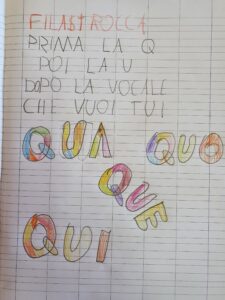 FILASTROCCA
PRIMA LA Q
POI LA U
DOPO LA VOCALE
CHE VUOI TU
QUA QUO
QUE
QUI